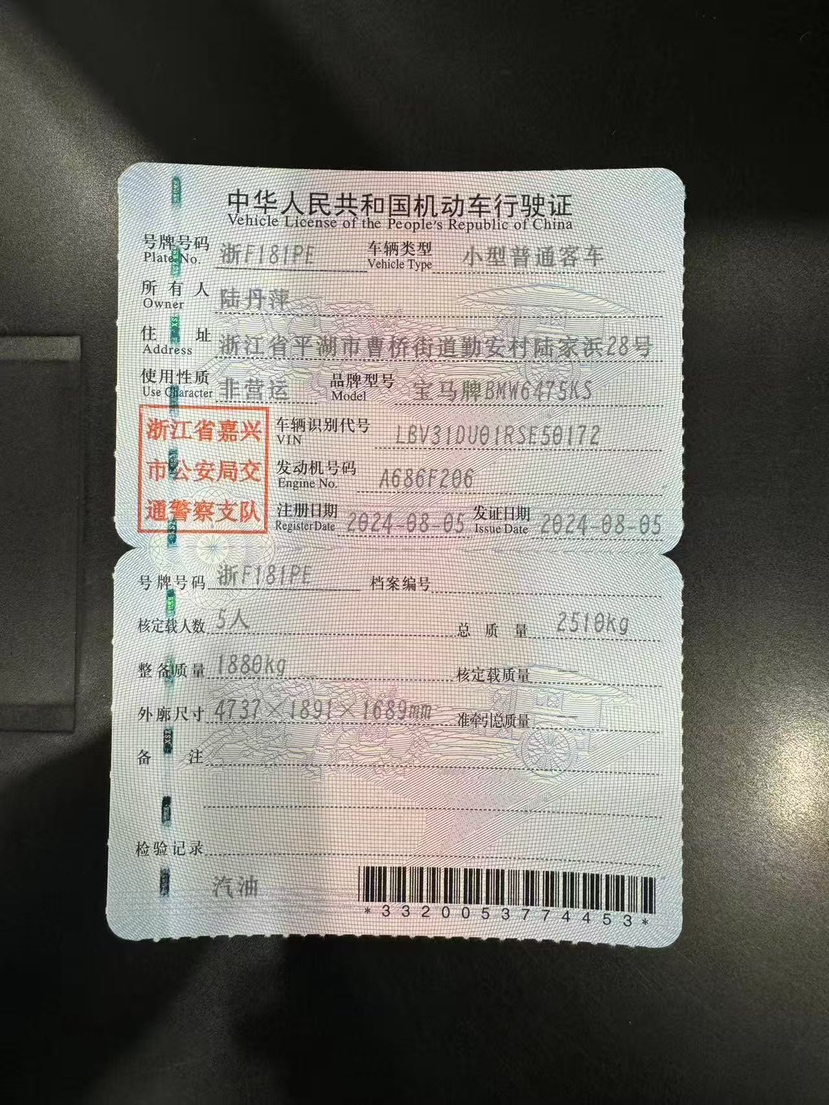 中华人民共和国机动车行驶证
Vehicle License of the People's Republic of China
号牌号码 浙F181PE 车辆类型 小型普通客车
Plate No. Vehicle Type
所有人 陆丹萍
Owner
住址 浙江省平湖市曹桥街道勤安村陆家浜28号
Address
使用性质 非营运 品牌型号 宝马牌BMW6475KS
Use Character Model
浙江省嘉兴
市公安局交
通警察支队
车辆识别代号 LBV31DU01RSE50172
VIN
发动机号码 A686F206
Engine No.
注册日期 2024-08-05 发证日期 2024-08-05
Register Date Issue Date
号牌号码 浙F181PE 档案编号
核定载人数 5人 总质量 2510kg
整备质量 1880kg 核定载质量
外廓尺寸 4737×1891×1689mm 准牵引总质量
备注
检验记录
汽油
*3320053774453*